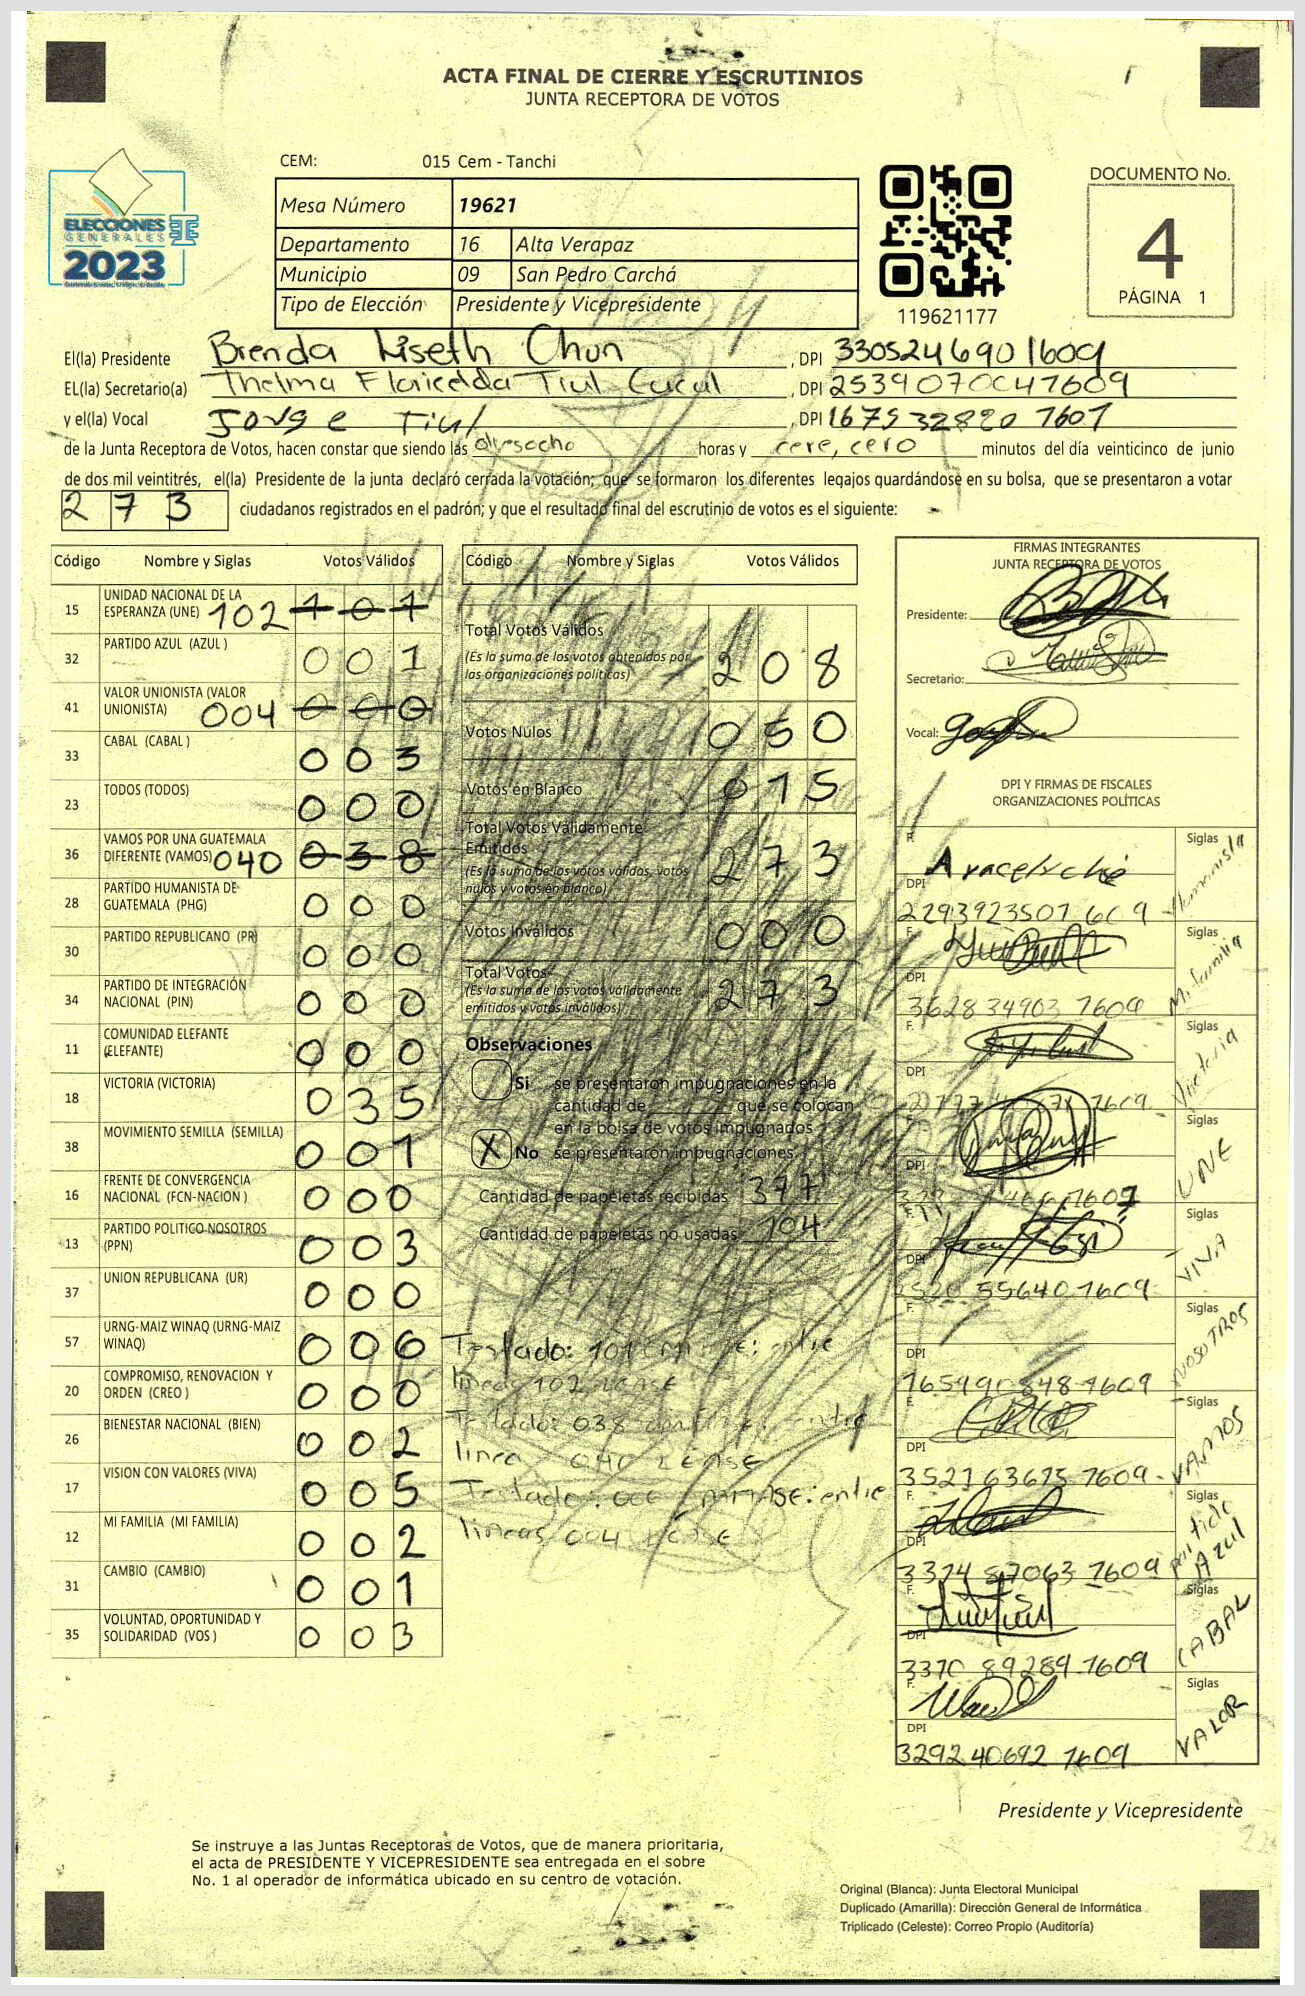 ACTA FINAL DE CIERRE Y ESCRUTINIOS
JUNTA RECEPTORA DE VOTOS
CEM: 015 Cem - Tanchi
ELECCIONES
GENERALES
2023
Mesa Número 19621
Departamento 16 Alta Verapaz
Municipio 09 San Pedro Carchá
Tipo de Elección Presidente y Vicepresidente
119621177
DOCUMENTO No.
4
PÁGINA 1
El(la) Presidente Brenda Liseth Chun , DPI 3305246901609
EL(la) Secretario(a) Thelma Floricelda Tiul Cucul , DPI 2539070047609
y el(la) Vocal Jorge Tiul , DPI 1679328201607
de la Junta Receptora de Votos, hacen constar que siendo las diesocho horas y cero, cero minutos del día veinticinco de junio
de dos mil veintitrés, el(la) Presidente de la junta declaró cerrada la votación; que se formaron los diferentes legajos guardándose en su bolsa, que se presentaron a votar
273 ciudadanos registrados en el padrón; y que el resultado final del escrutinio de votos es el siguiente:
Código Nombre y Siglas Votos Válidos
15 UNIDAD NACIONAL DE LA ESPERANZA (UNE) 102 101
32 PARTIDO AZUL (AZUL ) 001
41 VALOR UNIONISTA (VALOR UNIONISTA) 004 000
33 CABAL (CABAL ) 003
23 TODOS (TODOS) 000
36 VAMOS POR UNA GUATEMALA DIFERENTE (VAMOS) 040 038
28 PARTIDO HUMANISTA DE GUATEMALA (PHG) 000
30 PARTIDO REPUBLICANO (PR) 000
34 PARTIDO DE INTEGRACIÓN NACIONAL (PIN) 000
11 COMUNIDAD ELEFANTE (ELEFANTE) 000
18 VICTORIA (VICTORIA) 035
38 MOVIMIENTO SEMILLA (SEMILLA) 001
16 FRENTE DE CONVERGENCIA NACIONAL (FCN-NACION ) 000
13 PARTIDO POLITICO NOSOTROS (PPN) 003
37 UNION REPUBLICANA (UR) 000
57 URNG-MAIZ WINAQ (URNG-MAIZ WINAQ) 006
20 COMPROMISO, RENOVACION Y ORDEN (CREO ) 000
26 BIENESTAR NACIONAL (BIEN) 002
17 VISION CON VALORES (VIVA) 005
12 MI FAMILIA (MI FAMILIA) 002
31 CAMBIO (CAMBIO) 001
35 VOLUNTAD, OPORTUNIDAD Y SOLIDARIDAD (VOS ) 003
Código Nombre y Siglas Votos Válidos
Total Votos Válidos 208
(Es la suma de los votos obtenidos por
las organizaciones políticas)
Votos Nulos 050
Votos en Blanco 015
Total Votos Válidamente
Emitidos 273
(Es la suma de los votos válidos, votos
nulos y votos en blanco)
Votos Inválidos 000
Total Votos 273
(Es la suma de los votos válidamente
emitidos y votos inválidos)
Observaciones
Si se presentaron impugnaciones en la
cantidad de que se colocan
en la bolsa de votos impugnados
X No se presentaron impugnaciones.
Cantidad de papeletas recibidas 377
Cantidad de papeletas no usadas 104
Testado: 101 entre
lineas 102 LEASE
Testado: 038 entre
linea 040 LEASE
Testado: entre
lineas 004 LEASE
FIRMAS INTEGRANTES
JUNTA RECEPTORA DE VOTOS
Presidente:
Secretario:
Vocal:
DPI Y FIRMAS DE FISCALES
ORGANIZACIONES POLÍTICAS
F. Siglas Humanista
DPI 2293923507609
F. Siglas Mi familia
DPI 3628349037609
F. Siglas Victoria
DPI
F. Siglas UNE
DPI
F. Siglas VIVA
DPI 2520556401609
F. Siglas NOSOTROS
DPI
F. Siglas VAMOS
DPI 3521636757609
F. Siglas partido Azul
DPI 3374870637609
F. Siglas CABAL
DPI 3370892891609
F. Siglas VALOR
DPI 3292406921609
Presidente y Vicepresidente
Se instruye a las Juntas Receptoras de Votos, que de manera prioritaria,
el acta de PRESIDENTE Y VICEPRESIDENTE sea entregada en el sobre
No. 1 al operador de informática ubicado en su centro de votación.
Original (Blanca): Junta Electoral Municipal
Duplicado (Amarilla): Dirección General de Informática
Triplicado (Celeste): Correo Propio (Auditoría)